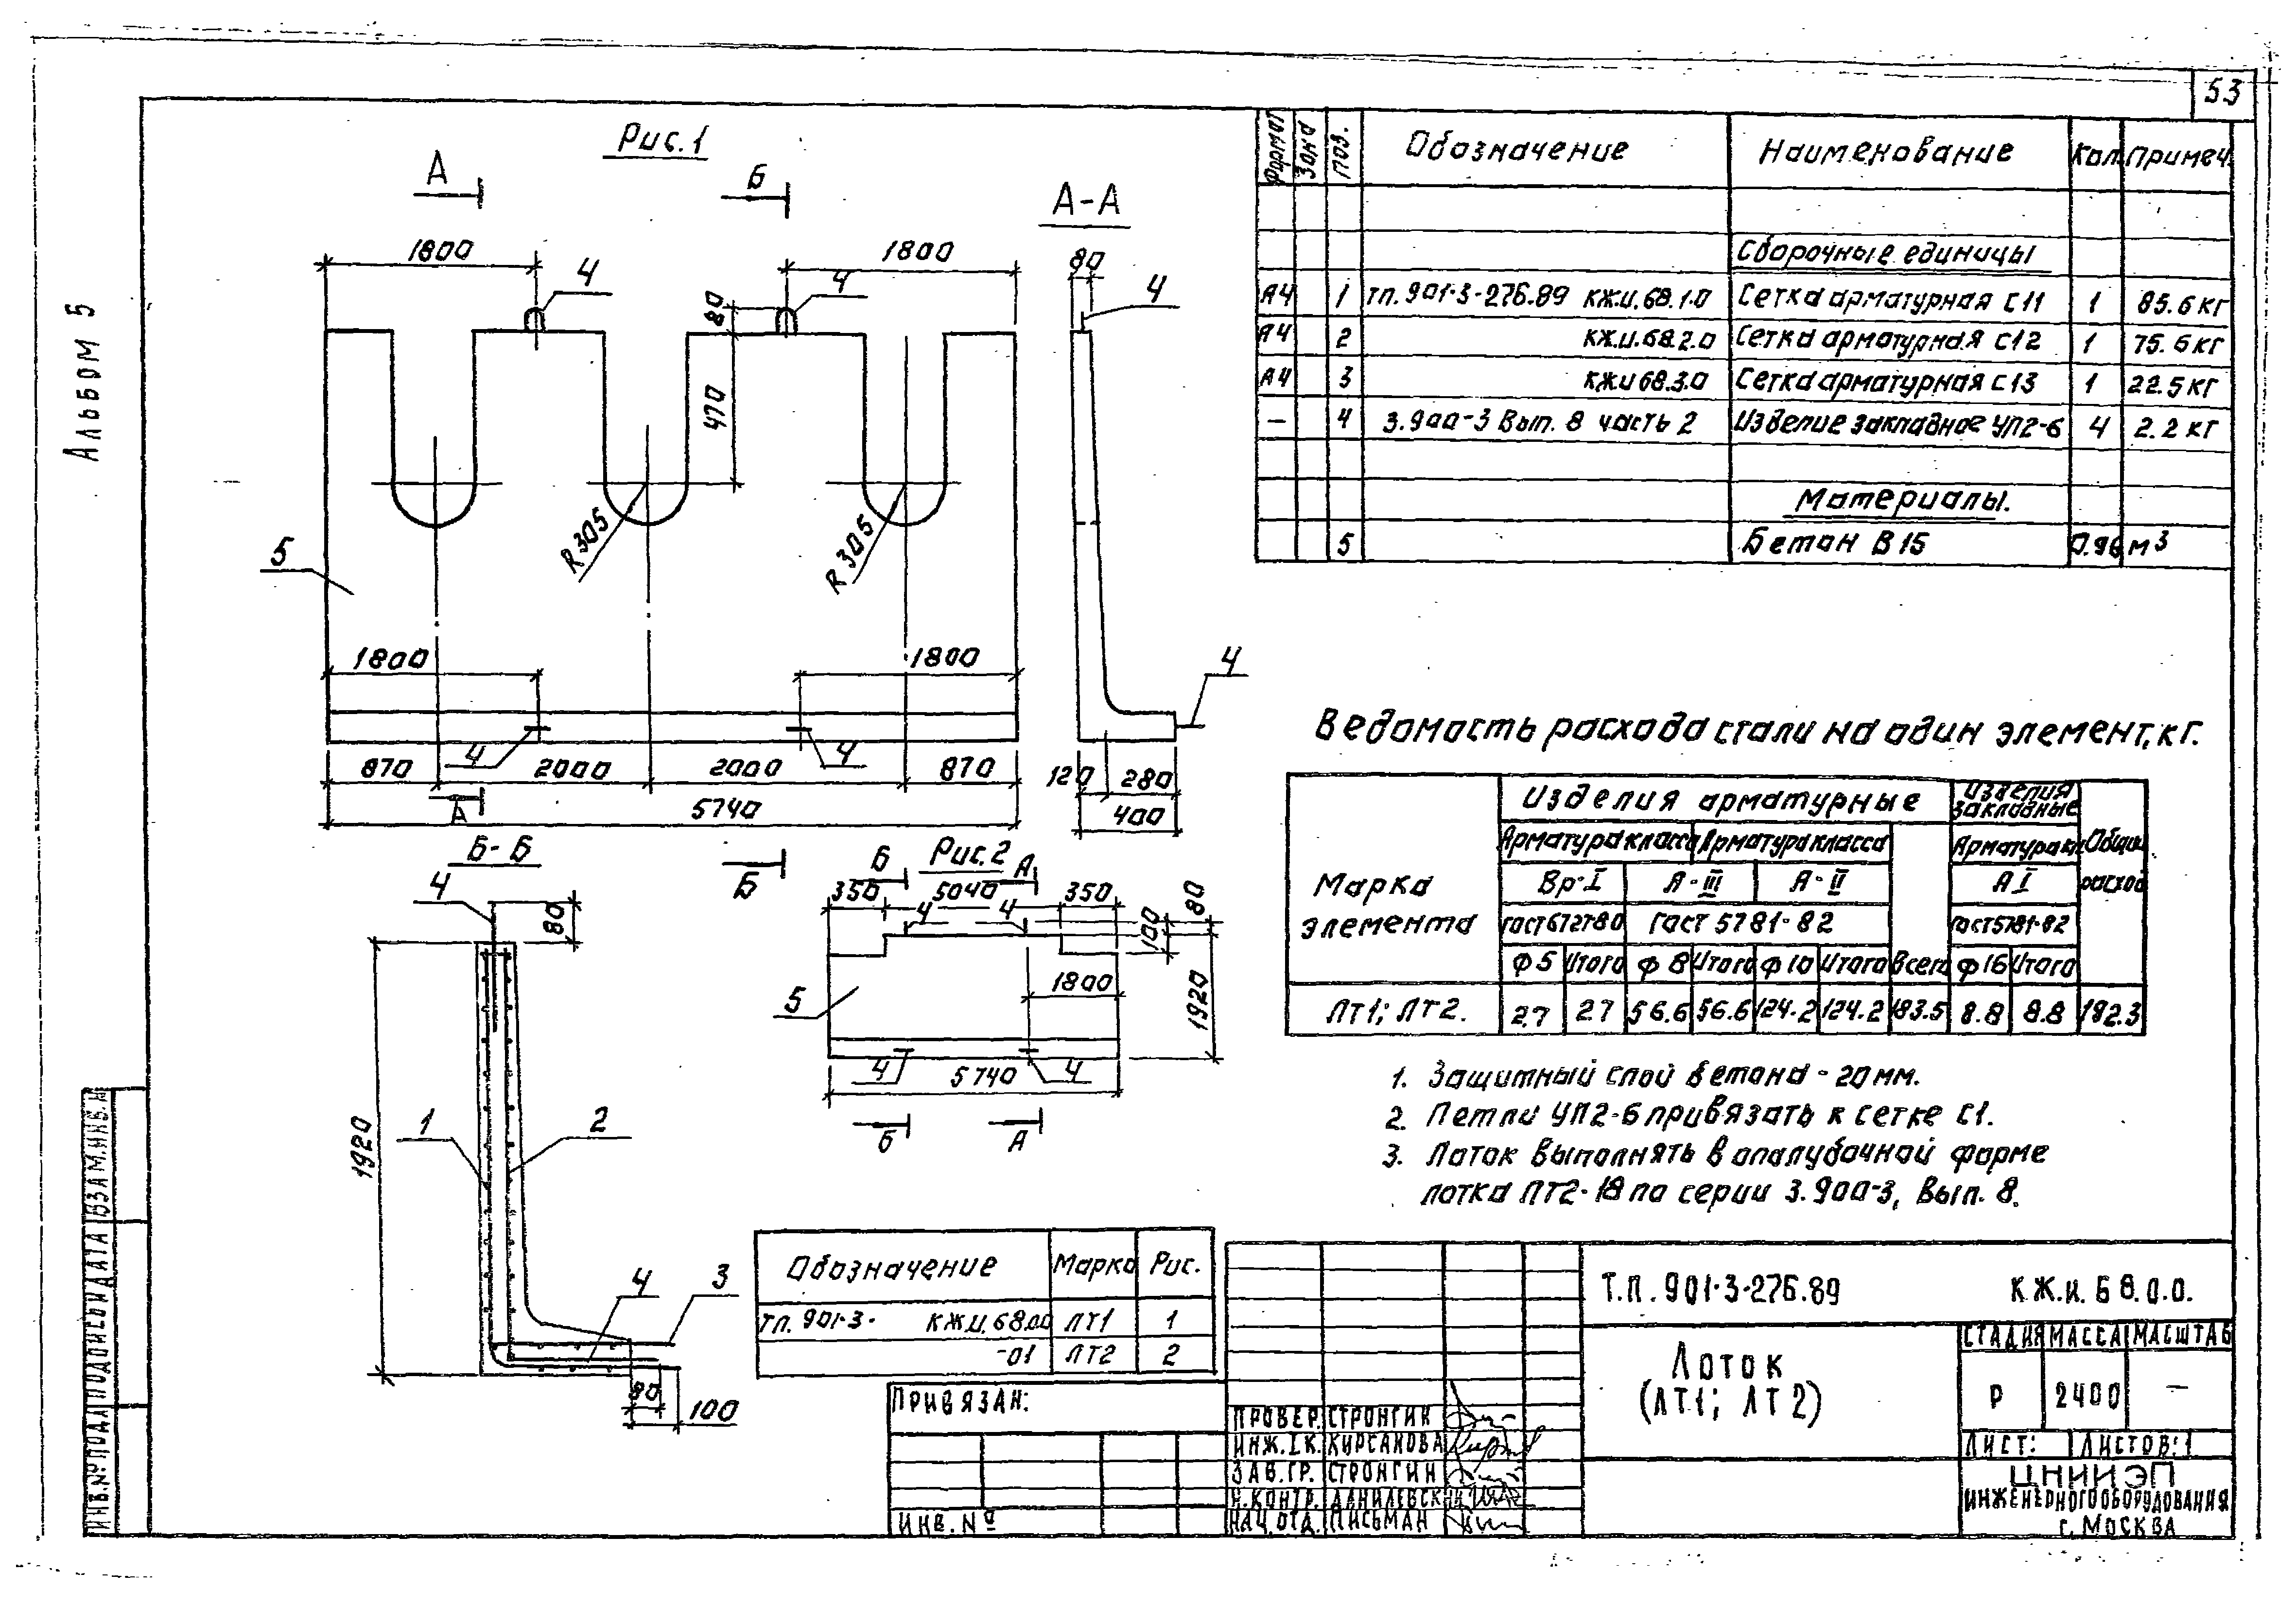 53
Альбом 5
Рис.1
А
Б
А-А
1800
4
1800
4
80
470
R305
R305
5
1800
1800
4
4
870
2000
2000
870
5740
А
Б
80
4
4
120
280
400
Б-Б
4
80
1920
1
2
4
3
80
100
Рис.2
Б
А
350
5040
350
4
4
80
100
1920
1800
5
4
4
5740
Б
А
Формат Зона Поз. Обозначение Наименование Кол. Примеч.
Сборочные единицы
А4 1 тп.901-3-276.89 КЖ.И.68.1.0 Сетка арматурная С11 1 85.6 кг
А4 2 КЖ.И.68.2.0 Сетка арматурная С12 1 75.6 кг
А4 3 КЖИ 68.3.0 Сетка арматурная С13 1 22.5 кг
— 4 3.900-3 Вып. 8 часть 2 Изделие закладное УП2-6 4 2.2 кг
Материалы.
5 Бетон В15 0.96 м3
Ведомость расхода стали на один элемент, кг.
Марка элемента
Изделия арматурные
Изделия закладные
Общий расход
Арматура класса Арматура класса Арматура кл.
Вр-I А-III А-II А I
ГОСТ 6727-80 ГОСТ 5781-82 ГОСТ 5781-82
Ф5 Итого Ф8 Итого Ф10 Итого Всего Ф16 Итого
ЛТ1; ЛТ2. 2.7 2.7 56.6 56.6 124.2 124.2 183.5 8.8 8.8 192.3
1. Защитный слой бетона - 20 мм.
2. Петли УП2-6 привязать к сетке С1.
3. Лоток выполнять в опалубочной форме
лотка ЛТ2-18 по серии 3.900-3, Вып. 8.
Обозначение Марка Рис.
тп. 901-3- КЖ.И.68.00 ЛТ1 1
-01 ЛТ2 2
Привязан:
Инв. №
Т.П. 901-3-276.89 КЖ.И.68.0.0.
Лоток
(ЛТ1; ЛТ2)
Стадия Масса Масштаб
Р 2400 —
Лист: Листов: 1
ЦНИИЭП
инженерного оборудования
г. Москва
Провер. Стронгин
Инж. I к. Кирсанова
Зав. гр. Стронгин
Н. контр. Данилевский
Нач. отд. Письман
Инв. № подл Подпись и дата Взам. инв. №